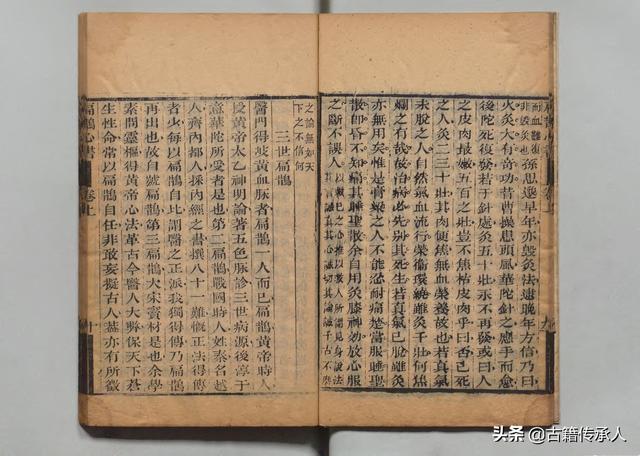 而血難復
非毀灸也
孫思邈早年亦毀灸法逮晚年方信乃曰
火灸大有奇功昔曹操患頭風華陀針之應手而愈
後陀死復發若于針處灸五十壯永不再發或曰人
之皮肉最嫩五百之壯豈不焦枯皮肉乎曰否已死
之人灸二三十壯其肉便焦無血榮養故也若真氣
未脫之人自然氣血流行榮衛環繞雖灸千壯何焦
爛之有哉故治病必先別其死生若真氣已脫雖灸
亦無用矣惟是膏粱之人不能忍耐痛楚當服睡聖
散即昏不知痛其睡聖散余自用灸膝神効放心服
之斷不誤人
以救己之心推以救人所謂見身說法
其言真其心誠其論千古不磨
之論無如天
下之不信何
三世扁鵲
醫門得岐黃血脉者扁鵲一人而已扁鵲黃帝時人
授黃帝太乙神明論著五色脉診三世病源後淳于
意華陀所受者是也第二扁鵲戰國時人姓秦名越
人齊內都人採內經之書撰八十一難慨正法得傳
者少每以扁鵲自比謂醫之正派我獨得傳乃扁鵲
再出也故自號扁鵲第三扁鵲大宋竇材是也余學
素問靈樞得黃帝心法革古今醫人大弊保天下蒼
生性命常以扁鵲自任非敢妄擬古人蓋亦有所徵
扁鵲心書
卷上
十
头条 @古籍传承人